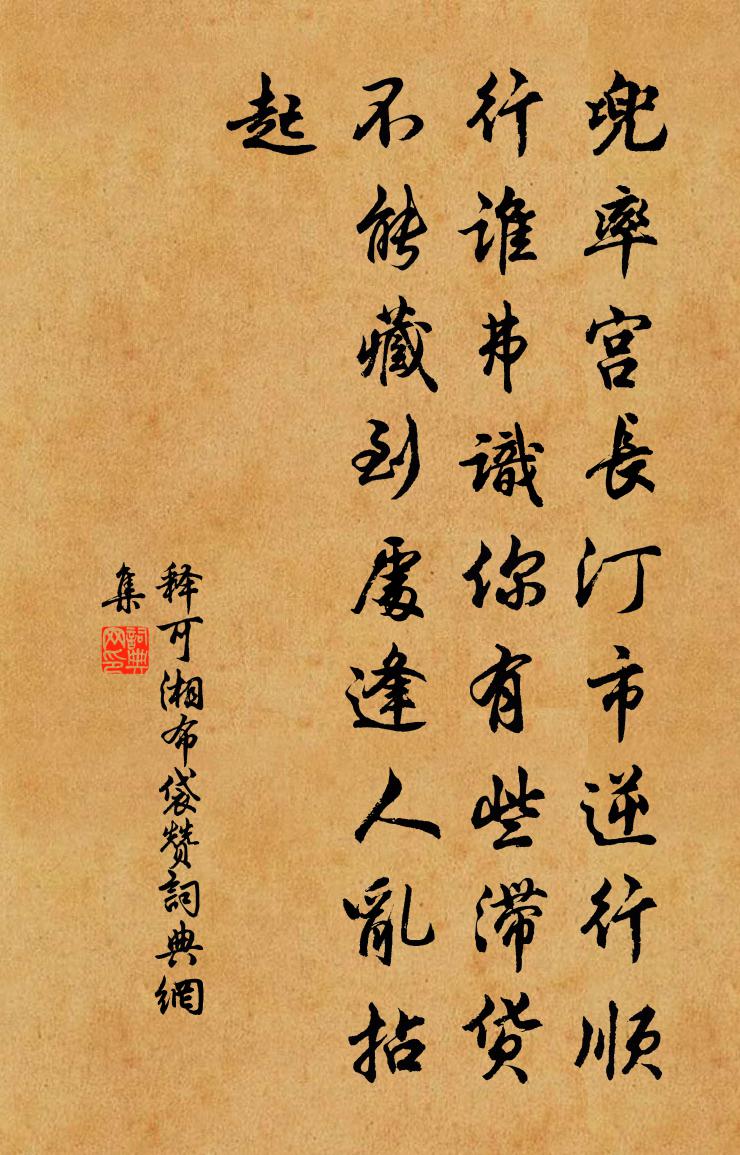 兜率宫長汀市逆行順
行誰弗識你有些滯货
不能藏到處逢人亂拈
起
释可湘布袋赞詞典網
集
詞典
网印